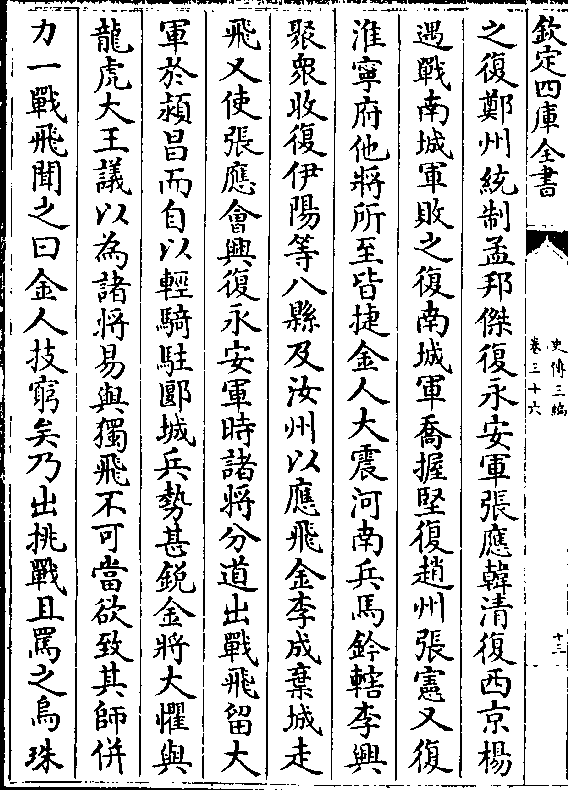 欽定四庫全書
史傳三編
卷三十六
十三
之復鄭州統制孟邦傑復永安軍張應韓清復西京楊
遇戰南城軍敗之復南城軍喬握堅復趙州張憲又復
淮寧府他將所至皆捷金人大震河南兵馬鈐轄李興
聚衆收復伊陽等八縣及汝州以應飛金李成棄城走
飛又使張應會興復永安軍時諸將分道出戰飛留大
軍於潁昌而自以輕騎駐郾城兵勢甚銳金將大懼與
龍虎大王議以為諸將易與獨飛不可當欲致其師併
力一戰飛聞之曰金人技窮矣乃出挑戰且罵之烏珠